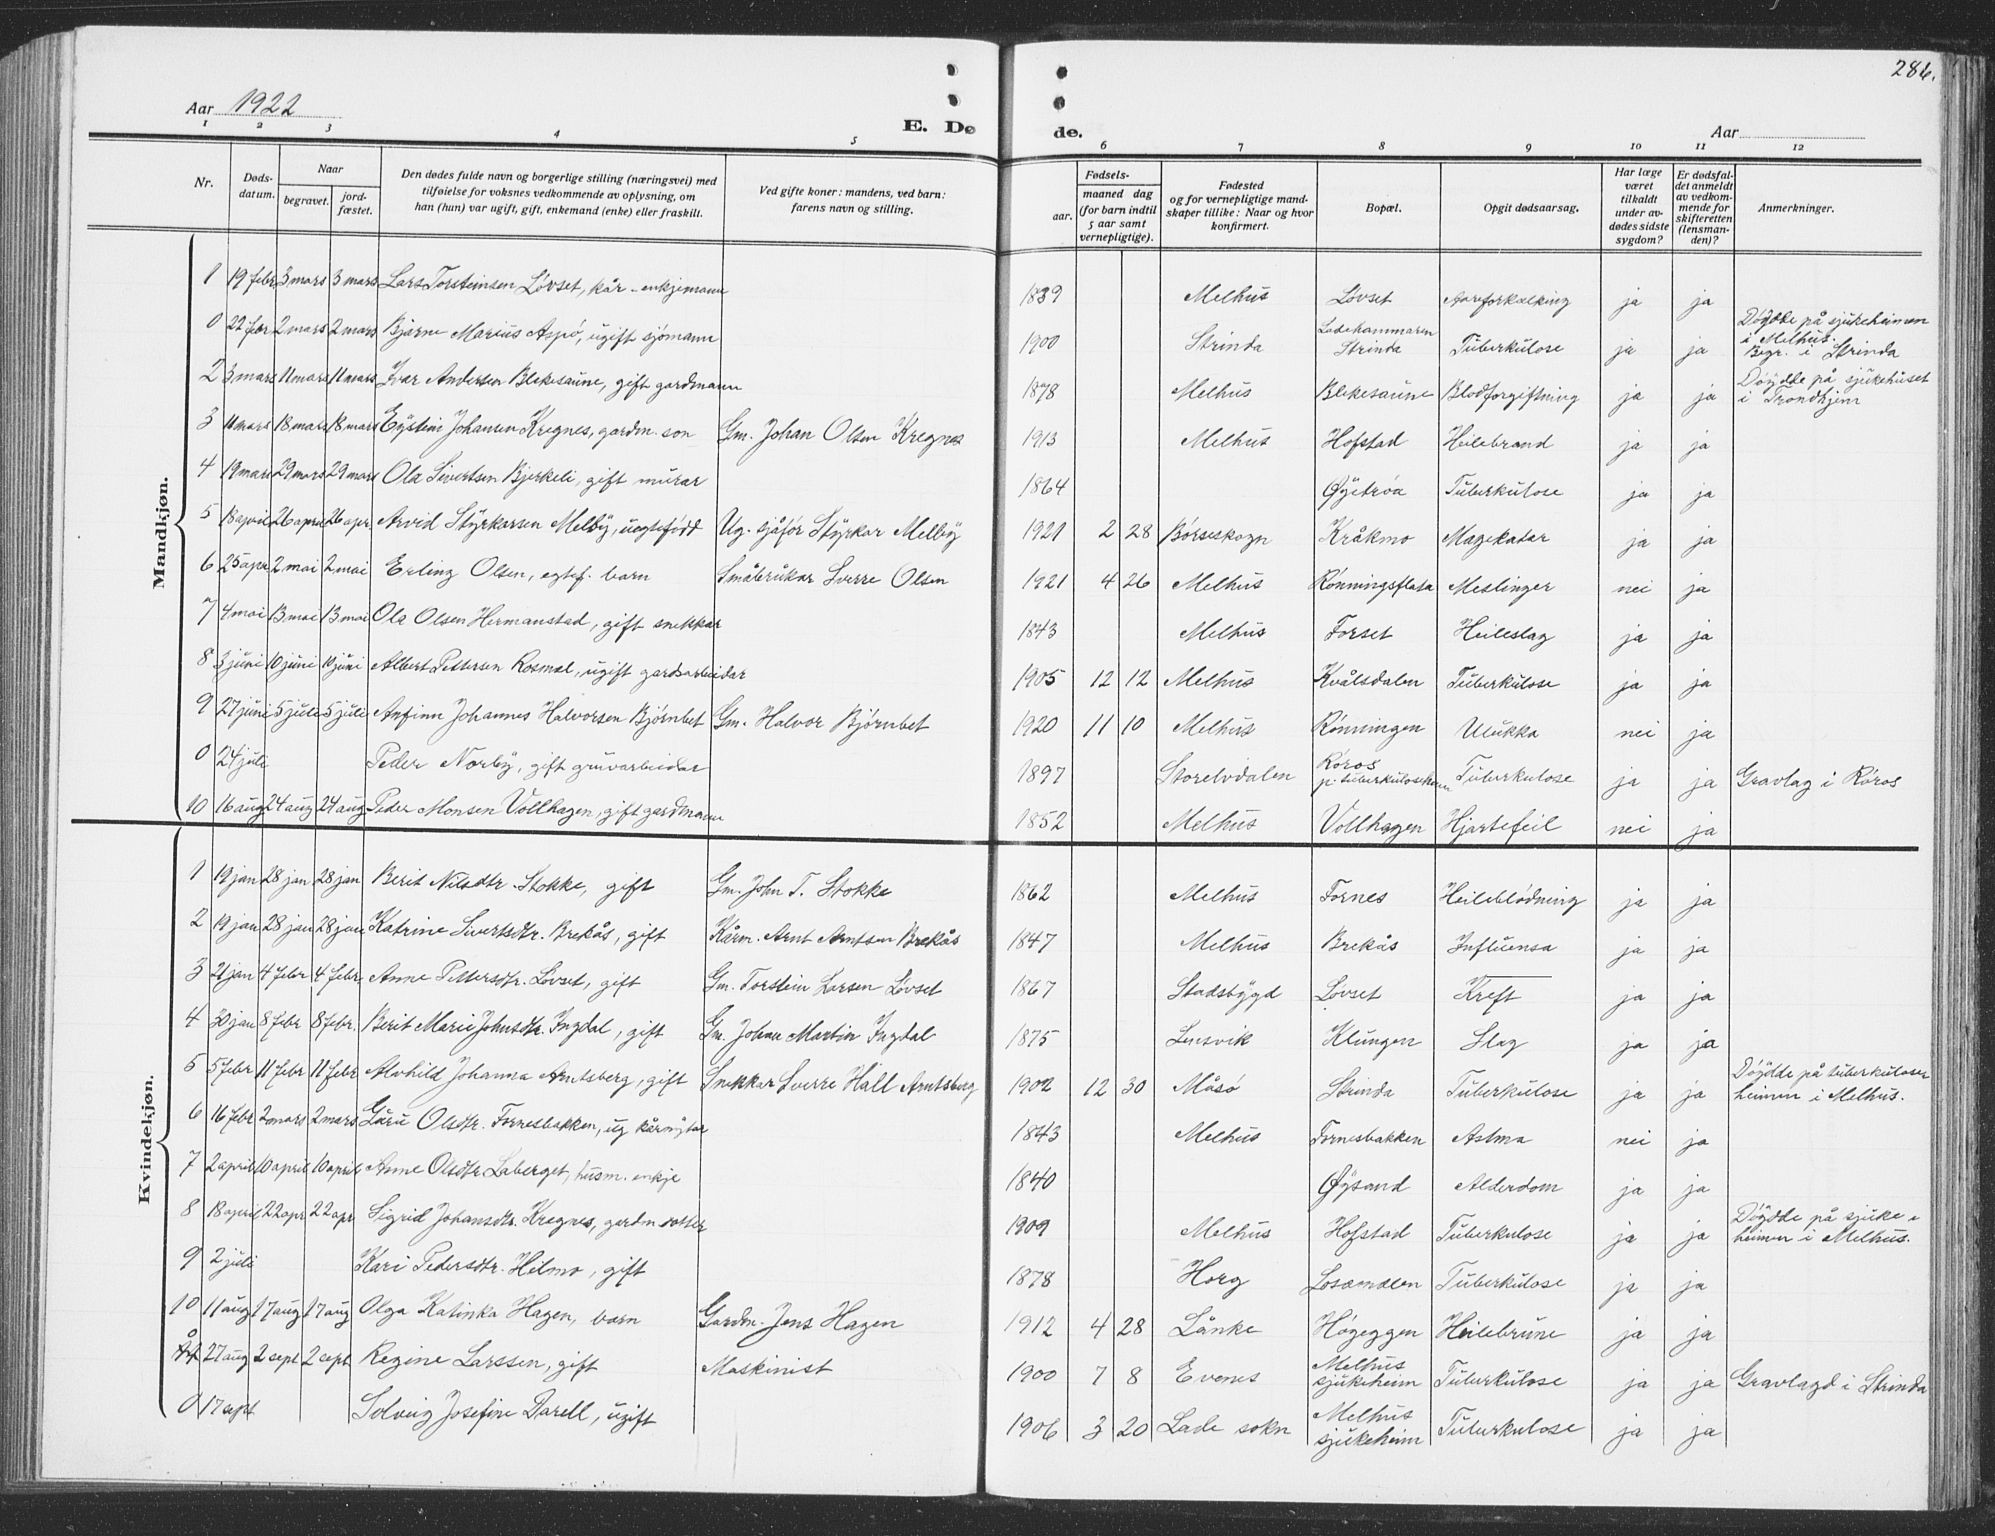 286.
Aar 1922
E. Dø de.
Aar
1 2 3 4 5 6 7 8 9 10 11 12
Nr.
Døds-
datum.
Naar
begravet.
jord-
fæstet.
Den dødes fulde navn og borgerlige stilling (næringsvei) med
tilføielse for voksnes vedkommende av oplysning, om
han (hun) var ugift, gift, enkemand (enke) eller fraskilt.
Ved gifte koner: mandens, ved barn:
farens navn og stilling.
Fødsels-
aar.
maaned dag
(for barn indtil
5 aar samt
vernepligtige).
Fødested
og for vernepligtige mand-
skaper tillike: Naar og hvor
konfirmert.
Bopæl.
Opgit dødsaarsag.
Har læge
været
tilkaldt
under av-
dødes sidste
sygdom?
Er dødsfal-
det anmeldt
av vedkom-
mende for
skifteretten
(lensman-
den)?
Anmerkninger.
Mandkjøn.
1 19 febr 3 mars 3 mars Lars Torsteinsen Løvset, kår-enkjemann 1839 Melhus Løvset Aareforkalking ja ja
0 22 febr 2 mars 2 mars Bjarne Marius Aspø, ugift sjømann 1900 Strinda Ladehammaren Strinda Tuberkulose ja ja Døydde på sjukeheimen i Melhus. Begr. i Strinda
2 3 mars 11 mars 11 mars Ivar Andersen Blekesaune, gift gardmann 1878 Melhus Blekesaune Blodforgiftning ja ja Døydde på sjukehuset i Trondhjem
3 11 mars 18 mars 18 mars Eystein Johansen Kregnes, gardm. son Gm. Johan Olsen Kregnes 1913 Melhus Hofstad Heilebrand ja ja
4 19 mars 29 mars 29 mars Ola Sivertsen Bjerkeli, gift murar 1864 Øyetrøa Tuberkulose ja ja
5 18 april 26 april 26 apr. Arvid Styrkarsen Melby, uegtefødd Ug. sjåfør Styrkar Melby 1921 2 28 Børseskogn Kråkmo Magekatar ja ja
6 25 apr 2 mai 2 mai Erling Olsen, egtef. barn Småbrukar Sverre Olsen 1921 4 26 Melhus Rønningsflata Meslinger nei ja
7 4 mai 13 mai 13 mai Ola Olsen Hermanstad, gift snekkar 1843 Melhus Forset Heileslag ja ja
8 3 juni 10 juni 10 juni Albert Pettersen Rosmæl, ugift gardsarbeidar 1905 12 12 Melhus Kvålsdalen Tuberkulose ja ja
9 27 juni 5 juli 5 juli Anfinn Johannes Halvorsen Bjørnbet Gm. Halvor Bjørnbet 1920 11 10 Melhus Rønningen Ulukka nei ja
0 24 juli Peder Norby, gift gruvarbeidar 1897 Storelvdalen Røros p. tuberkuloseheim Tuberkulose ja ja Gravlag i Røros
10 16 aug 24 aug 24 aug Peder Monsen Vollhagen, gift gardmann 1852 Melhus Vollhagen Hjartefeil nei ja
Kvindekjøn.
1 19 jan 28 jan 28 jan Berit Nilsdtr. Stokke, gift Gm. John T. Stokke 1862 Melhus Fornes Heileblødning ja ja
2 19 jan 28 jan 28 jan Katrine Sivertsdtr. Brekås, gift Kårm. Arnt Arntsen Brekås 1847 Melhus Brekås Influensa ja ja
3 21 jan 4 febr 4 febr. Anne Pettersdtr. Løvset, gift Gm. Torstein Larsen Løvset 1867 Stadsbygd Løvset Kreft ja ja
4 30 jan 8 febr 8 febr. Berit Marie Johnsdtr. Ingdal, gift Gm. Johan Martin Ingdal 1875 Lensvik Klungen Slag ja ja
5 5 febr 11 febr 11 febr Alvhild Johanna Arntsberg, gift Snekkar Sverre Hall Arntsberg 1902 12 30 Måsø Strinda Tuberkulose ja ja Døydde på tuberkuloseheimen i Melhus.
6 16 febr 2 mars 2 mars Guru Olsdtr. Fornesbakken, ug kårnytar 1843 Melhus Fornesbakken Astma nei ja
7 2 april 10 april 10 april Anne Olsdtr. Laberget, husm. enkje 1840 Øysand Alderdom ja ja
8 18 april 22 apr 22 apr. Sigrid Johansdtr. Kregnes, gardm. dotter 1909 Melhus Hofstad Tuberkulose ja ja Døydde på sjukeheimen i Melhus.
9 2 juli Kari Pedersdtr. Helmo, gift 1878 Horg Losamælen Tuberkulose ja ja
10 11 aug 17 aug 17 aug Olga Katinka Hagen, barn Gardm. Jens Hagen 1912 4 28 Lånke Høgeggen Heilebrune ja ja
27 aug 2 sept 2 sept Regine Larssen, gift Maskinist 1900 7 8 Evenes Melhus sjukeheim Tuberkulose ja ja Gravlagd i Strinda
0 17 sept Solveig Josefine Darell, ugift 1906 3 20 Lade sokn Melhus sjukeheim Tuberkulose ja ja